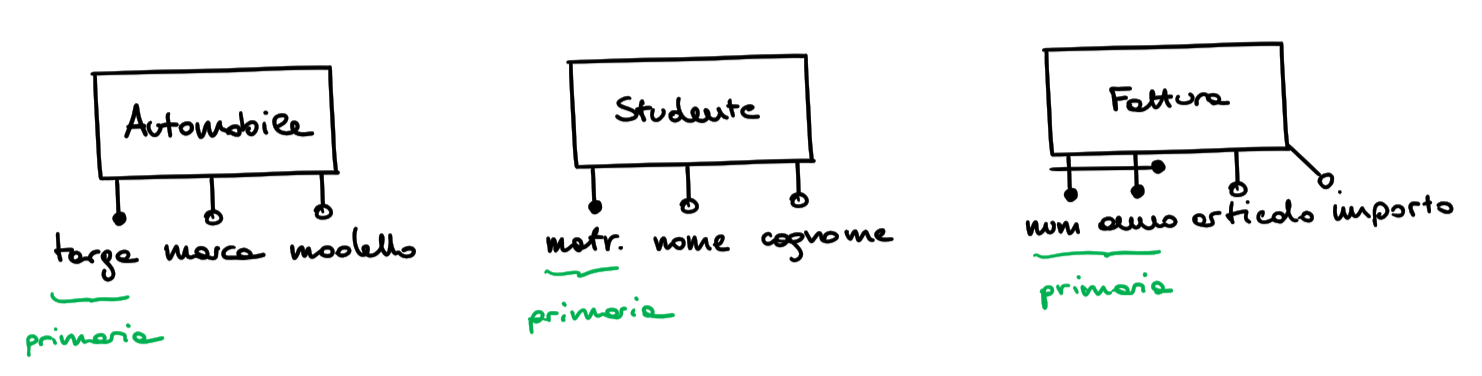 Automobile
targa marca modello
primaria
Studente
matr. nome cognome
primaria
Fattura
num anno articolo importo
primaria